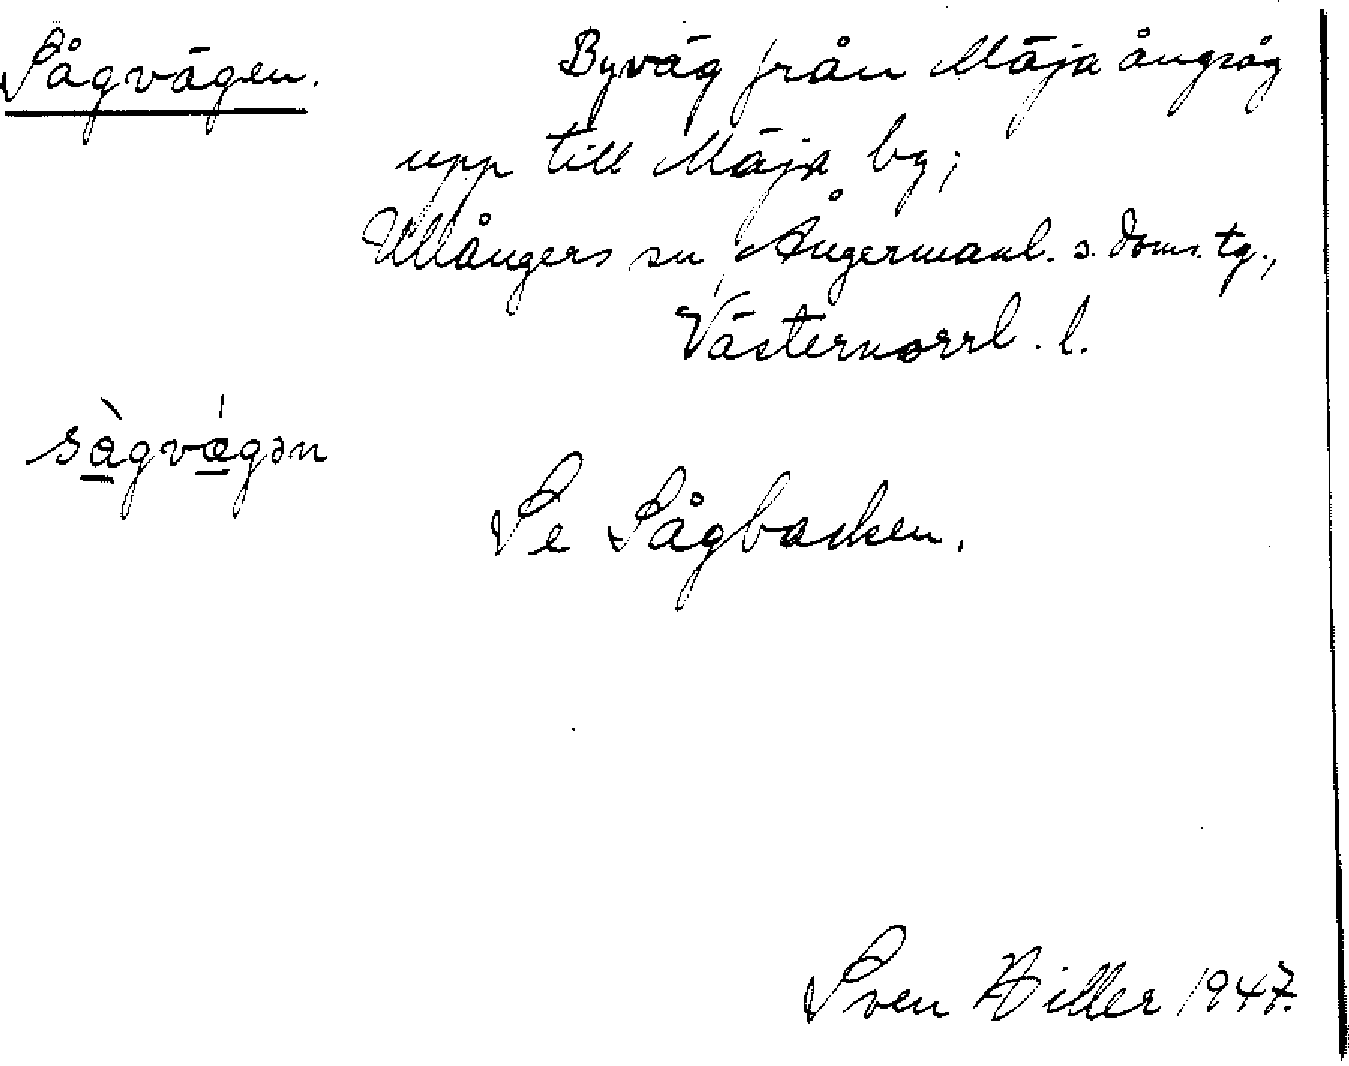 Sågvägen. Byväg från Mäja ångsåg
upp till Mäja by;
Ullångers sn, Ångermanl. s. doms. tg.,
Västernorrl. l.
sàgvǽgən
Se Sågbacken.
Sven Hiller 1947.